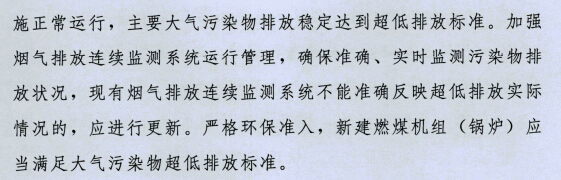 施正常运行，主要大气污染物排放稳定达到超低排放标准。加强
烟气排放连续监测系统运行管理，确保准确、实时监测污染物排
放状况，现有烟气排放连续监测系统不能准确反映超低排放实际
情况的，应进行更新。严格环保准入，新建燃煤机组（锅炉）应
当满足大气污染物超低排放标准。